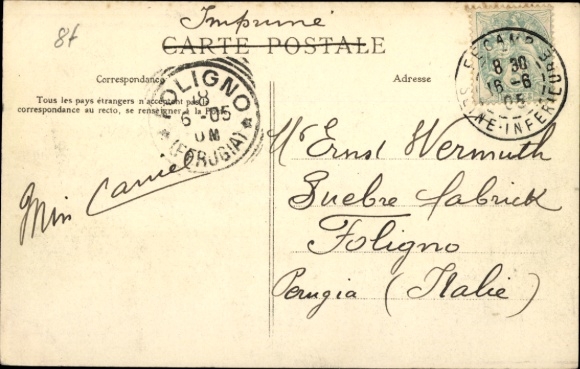 8f
Imprimé
CARTE POSTALE
Correspondance
Tous les pays étrangers n'acceptent pas la
correspondance au recto, se renseigner à la Poste
FOLIGNO
18
6-05
(PERUGIA)
Adresse
FÉCAMP
8 30
16-6
05
SEINE-INFERIEURE
Mr Ernst Wermuth
Foligno
Perugia (Italie)